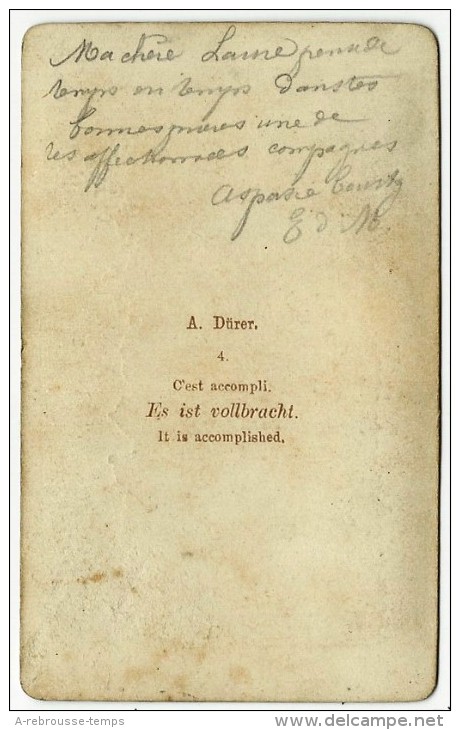 Ma chère Laure pense de
temps en temps dans tes
bonnes prières une de
tes affectionnées compagnes
Aspasie
E d M
A. Dürer.
4.
C'est accompli.
Es ist vollbracht.
It is accomplished.
A-rebrousse-temps
http://www.delcampe.net